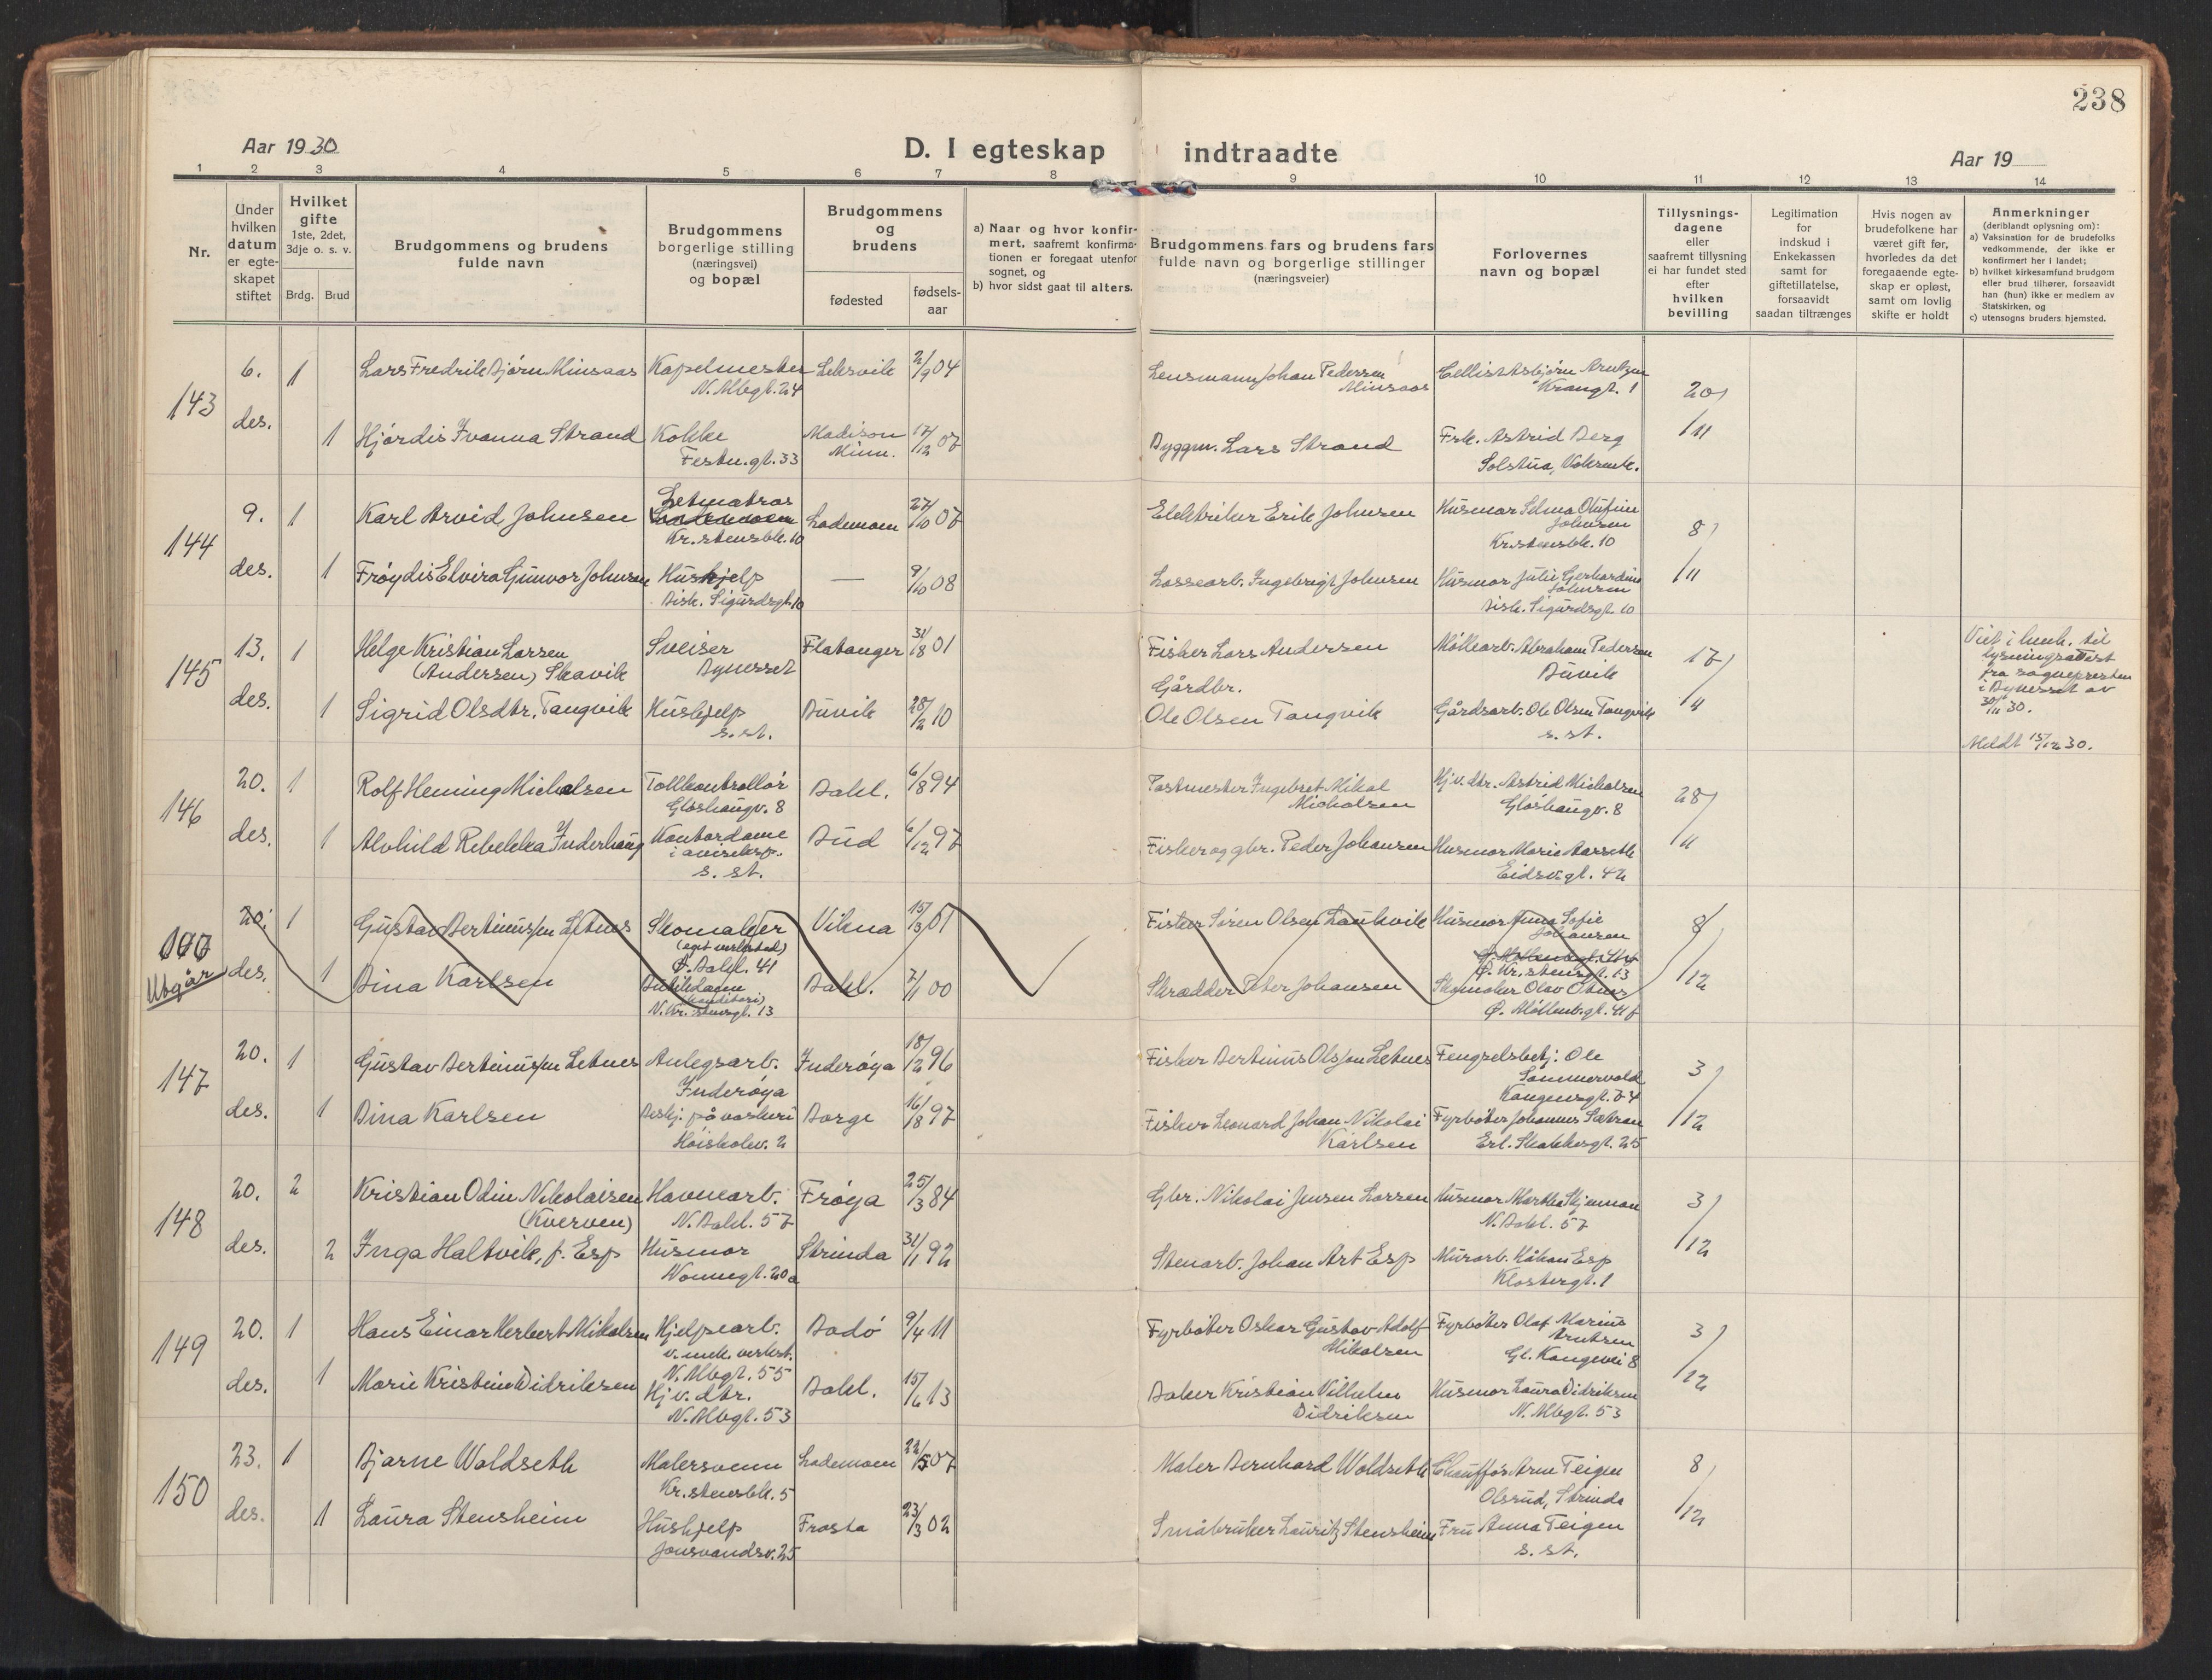 238
Aar 1930
D. I egteskap indtraadte
Aar 19
1 2 3 4 5 6 7 8 9 10 11 12 13 14
Nr.
Under hvilken datum er egte-skapet stiftet
Hvilket gifte 1ste, 2det, 3dje o. s. v.
Brdg. Brud
Brudgommens og brudens fulde navn
Brudgommens borgerlige stilling (næringsvei) og bopæl
Brudgommens og brudens
fødested
fødsels-aar
a) Naar og hvor konfir-mert, saafremt konfirma-tionen er foregaat utenfor sognet, og
b) hvor sidst gaat til alters.
Brudgommens fars og brudens fars fulde navn og borgerlige stillinger (næringsveier)
Forlovernes navn og bopæl
Tillysnings-dagene eller saafremt tillysning ei har fundet sted efter hvilken bevilling
Legitimation for indskud i Enkekassen samt for giftetillatelse, forsaavidt saadan tiltrænges
Hvis nogen av brudefolkene har været gift før, hvorledes da det foregaaende egte-skap er opløst, samt om lovlig skifte er holdt
Anmerkninger (deriblandt oplysning om):
a) Vaksination for de brudefolks vedkommende, der ikke er konfirmert her i landet;
b) hvilket kirkesamfund brudgom eller brud tilhører, forsaavidt han (hun) ikke er medlem av Statskirken, og
c) utensogns bruders hjemsted.
143 6. 1 Lars Fredrik Bjørn Minsaas Kapelmester Leksvik 2/9 04 Lensmann Johan Pedersen Cellist Asbjørn Arntzen 20/11
N. Mbgt. 24 Minsaas Krangt. 1
des. 1 Hjørdis Ivanna Strand Kokke Madison 17/12 07 Byggm. Lars Strand Frk. Astrid Berg
Festn.gt. 33 Minn. Solstua,
144 9. 1 Karl Arvid Johnsen Letmatros Lademoen 27/10 07 Elektriker Erik Johnsen Husmor Selma Olufine 8/11
Lademoen Johnsen
Kr.stensblk. 10 Kr.stensblk. 10
des. 1 Frøydis Elvira Gunvor Johnsen Hushjelp — 9/10 08 Lossearb. Ingebrigt Johnsen Husmor Julie Gerhardine
Johnsen
Bisk. Sigurdsgt. 10 Bisk. Sigurdsgt. 10
145 13. 1 Helge Kristian Larsen Sveiser Flatanger 31/8 01 Fisker Lars Andersen Møllearb. Abraham Pedersen 17/11 Viet i henh. til
(Andersen) Skavik Bynesset Buvik lysningsattest
fra sognepresten
Gårdbr. i Bynesset av
des. 1 Sigrid Olsdtr. Tangvik Hushjelp Buvik 28/2 10 Ole Olsen Tangvik Gårdsarb. Ole Olsen Tangvik 30/11 30.
s. st. s. st.
Meldt 15/12 30.
146 20. 1 Rolf Heming Michalsen Tollkontrollør Bakl. 6/8 94 Postmester Ingebret Mikal Hjv. dtr. Astrid Michalsen 28/11
Gløshaugv. 8 Michalsen Gløshaugv. 8
des. 1 Alvhild Rebekka Inderhaug Kontordame Bud 6/12 97 Fisker og gbr. Peder Johansen Husmor Marie Aarseth
i aviseksp. Eidsv.gt. 42
s. st.
Utgår 20. 1 Gustav Bertinussen Letnes Skomaker Vikna 15/3 01 Fisker Søren Olsen Laukvik Husmor Anna Sofie 8/12
(eget verksted) Johansen
Ø. Bakl. 41
Ø. Kr.stensgt. 13
des. 1 Dina Karlsen Butikkdame Bakl. 7/1 00 Skrædder Peter Johansen Skomaker Olav
(konditori)
N. Kr. stensgt. 13 Ø. Møllenb.gt. 41 f
147 20. 1 Gustav Bertinussen Letnes Anlegsarb. Inderøya 18/12 96 Fisker Bertinus Olsson Letnes Fengselsbetj. Ole 3/12
Inderøya Sommervold
Kongensgt. 84
des. 1 Dina Karlsen Beskj. på vaskeri Borge 16/8 97 Fisker Leonard Johan Nikolai Fyrbøter Johannes Sætran
Høiskolev. 2 Karlsen Erl. Skakkesgt. 25
148 20. 2 Kristian Odin Nikolaisen Havnearb. Frøya 25/3 84 Gbr. Nikolai Jensen Larsen Husmor Martha Skjennan 3/12
(Kverven) N. Bakl. 57 N. Bakl. 57
des. 2 Inga Haltvik, f. Esp Husmor Strinda 31/1 92 Stenarb. Johan Art Esp Murarb. Håkon Esp
Nonnegt. 20a Klostergt. 1
149 20. 1 Hans Einar Herbert Mikalsen Hjelpearb. Bodø 9/4 11 Fyrbøter Oskar Gustav Adolf Fyrbøter Olaf Marius 3/12
v. mek. verkst. Mikalsen Arntsen
N. Mbgt. 55 Gl. Kongevei 8
des. 1 Marie Kristine Didriksen Hjv. dtr. Bakl. 15/6 13 Baker Kristian Vilhelm Husmor Laura Didriksen
N. Mbgt. 53 Didriksen N. Mbgt. 53
150 23. 1 Bjarne Woldseth Malersvenn Lademoen 22/5 07 Maler Bernhard Woldseth Chauffør Arne Teigen 8/12
Kr.stensblk. 5 Olsrud, Strinda
des. 1 Laura Stensheim Hushjelp Frosta 23/3 02 Småbruker Lauritz Stensheim Fru Anna Teigen
Jonsvandsv. 25 s. st.